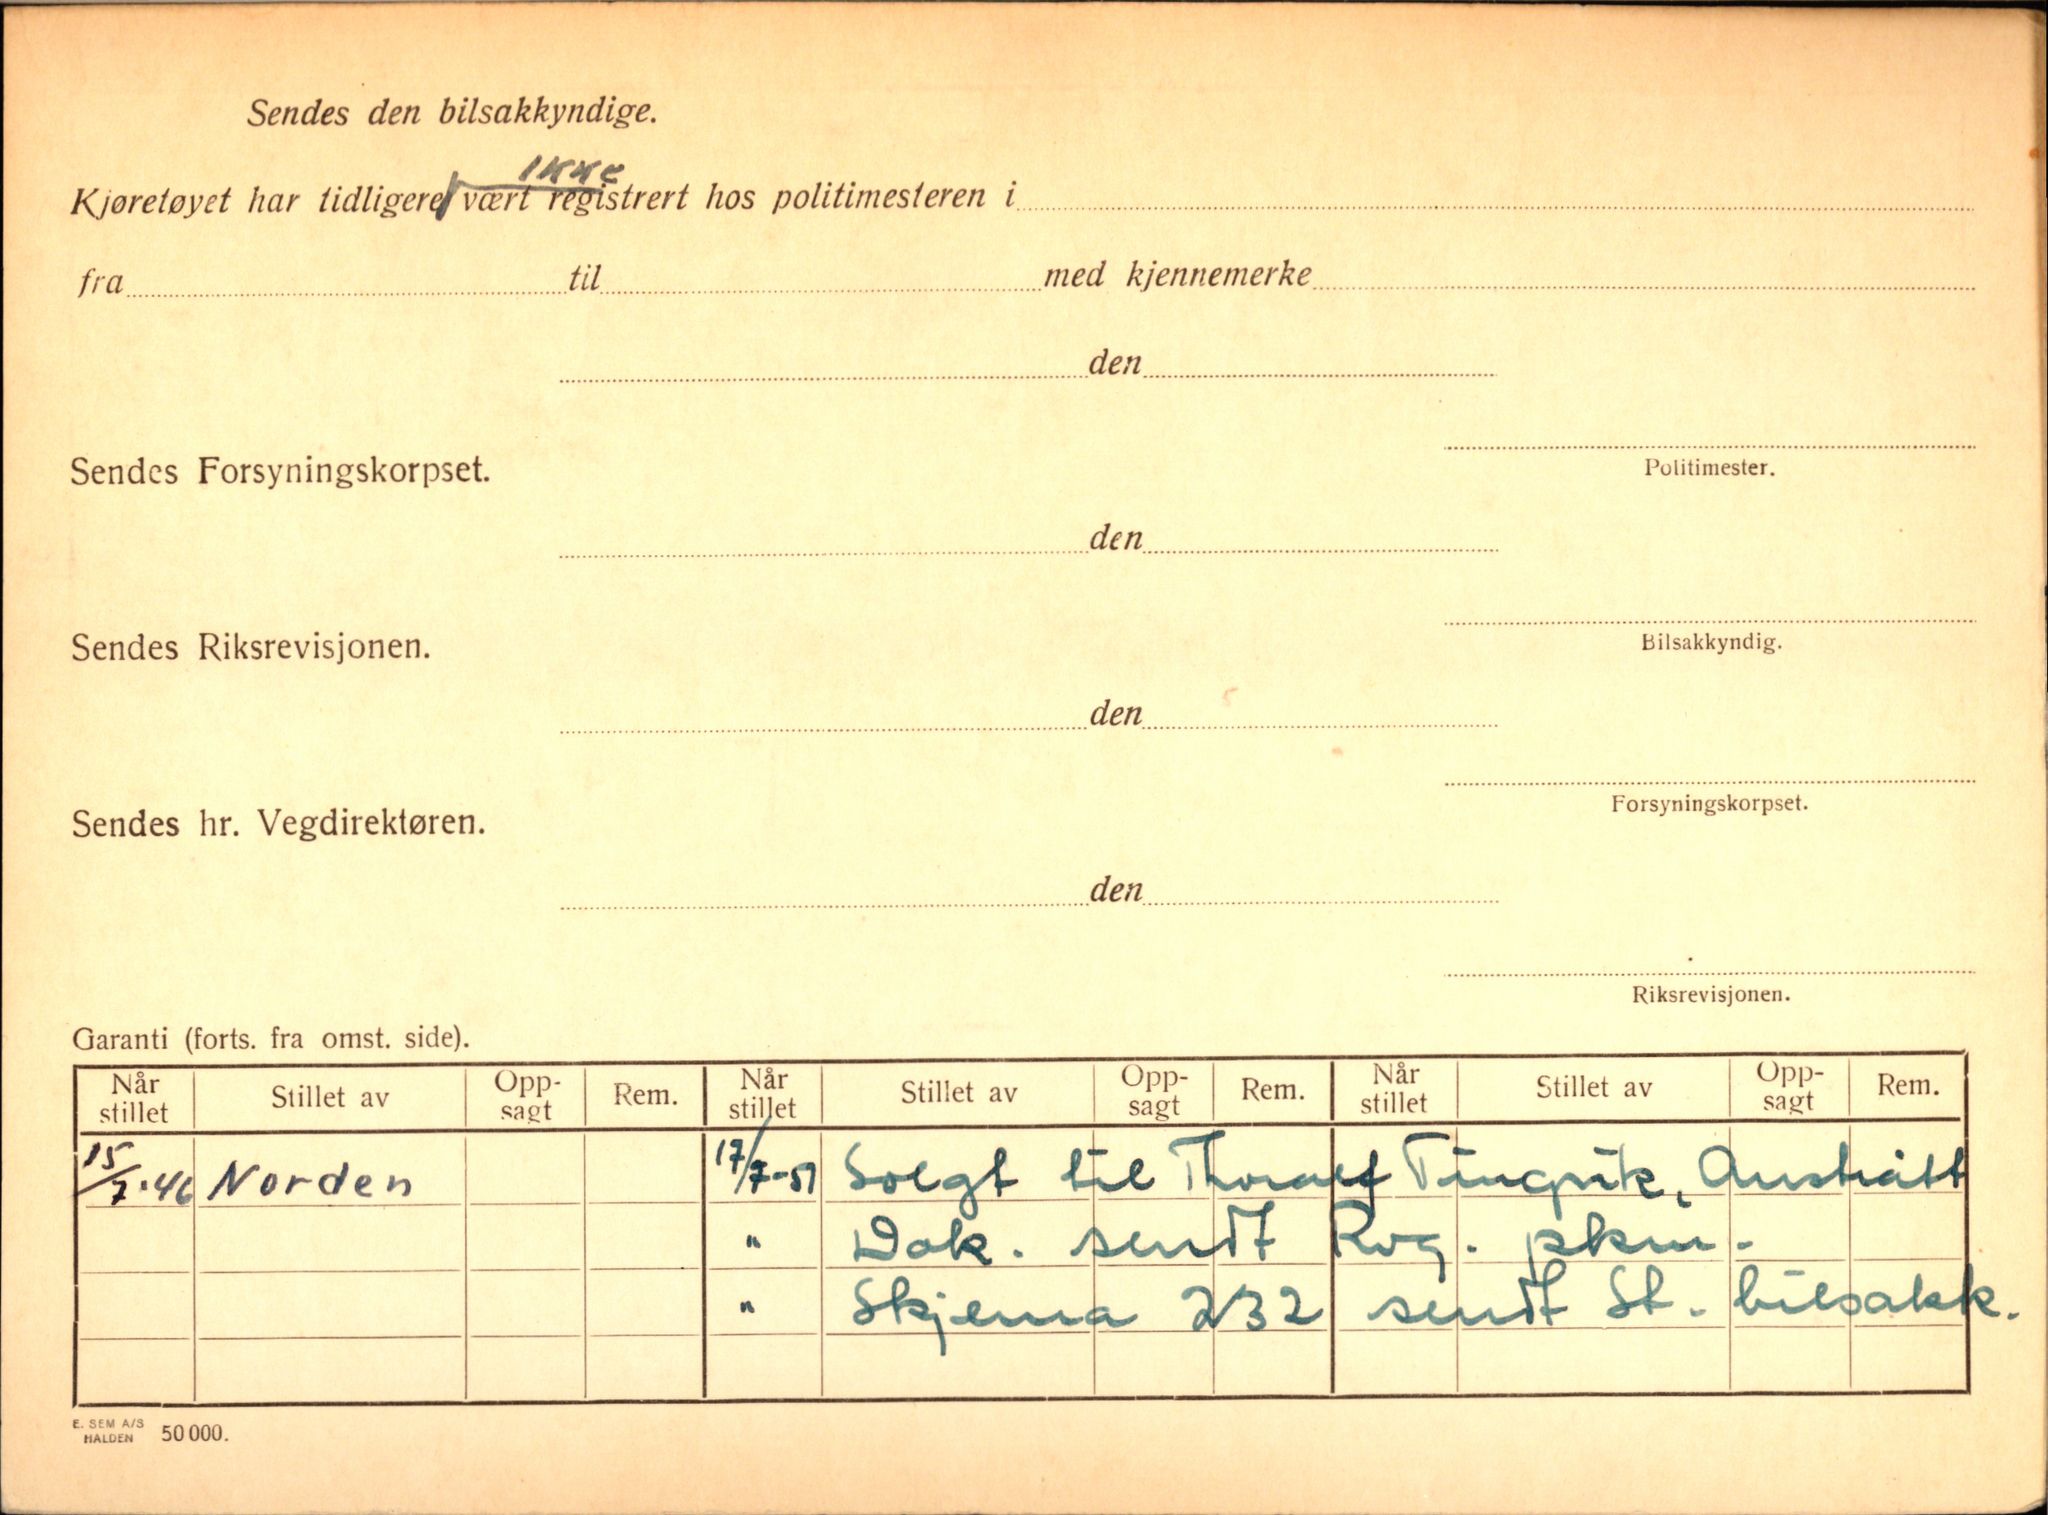 Sendes den bilsakkyndige.
Ikke
Kjøretøyet har tidligere vært registrert hos politimesteren i
fra til med kjennemerke
den
Politimester.
Sendes Forsyningskorpset.
den
Bilsakkyndig.
Sendes Riksrevisjonen.
den
Forsyningskorpset.
Sendes hr. Vegdirektøren.
den
Riksrevisjonen.
Garanti (forts. fra omst. side).
Når stillet Stillet av Opp-sagt Rem. Når stillet Stillet av Opp-sagt Rem. Når stillet Stillet av Opp-sagt Rem.
15/7-46 Norden 17/7-51 Solgt til Thoralf Austrått
" Dok. sendt Rog. pkm.
" Skjema 232 sendt St. bilsakk.
E. SEM A/S
HALDEN 50 000.